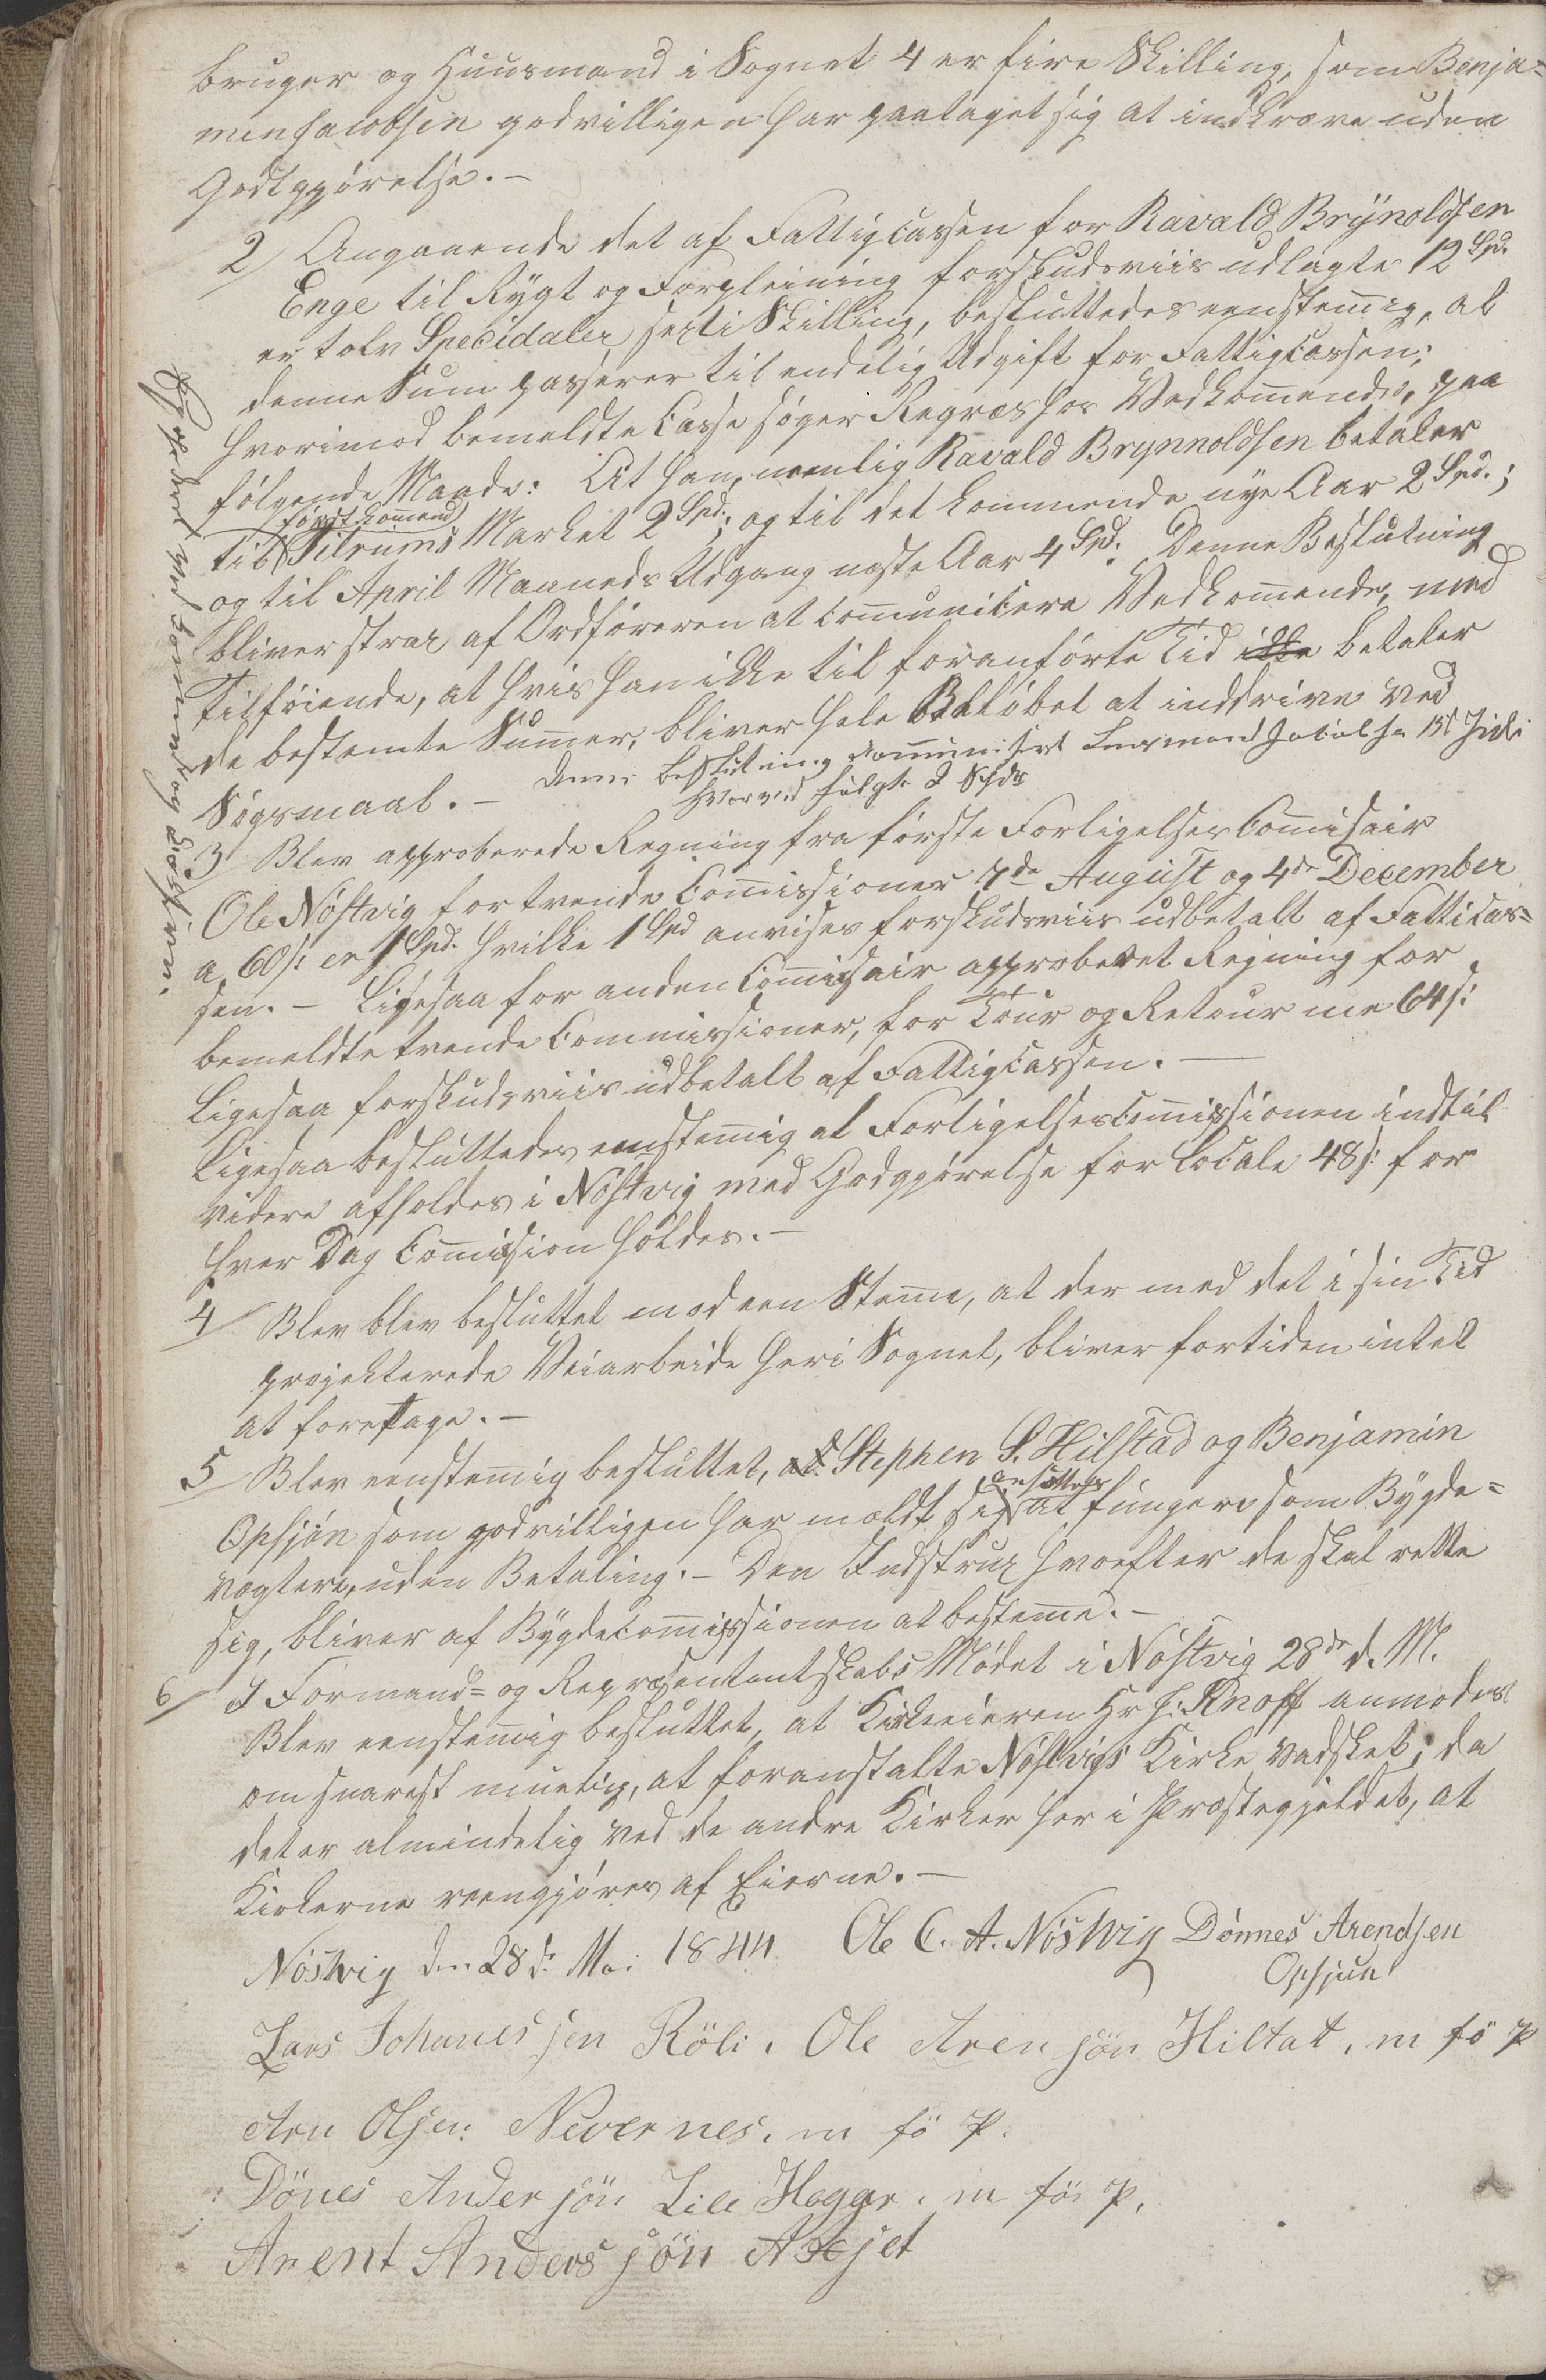 bruger og Huusmand i Sognet 4 er fire Skilling, som Benja=
min Jacobsen godvilligen har paataget sig at indkræve uden
Godtgjørelse. —
2/ Angaaende det af Fattigcassen for Ravald Brÿnoldsen
Enge til Rÿgt og Forpleining forskudsviis udlagte 12 Spd.
er tolv Speciedaler sexti Skilling, besluttedes eenstem̄ig, at
denne Sum passerer til endelig Udgift for Fattigcassen;
hvorimod bemeldte Casse søger Regres hos Vedkom̄ende, paa
følgende Maade: At han, nemlig Ravald Brynnoldsen betaler
til førstkom̄end Tilrums Market 2 Spd.; og til det kommende nye Aar 2 Spd.;
og til April Maaneds Udgang næste Aar 4 Spd. Denne Beslutning
bliver strax af Ordføreren at com̄unicere Vedkom̄ende, med
Tilføiende, at hvis han ikke til foranførte Tid ikke betaler
de bestemte Sum̄er, bliver hele Beløbet at inddrive ved
Søgsmaal. — Denne Beslutning kom̄unisert Lensmand Jacobsen 15d Juli
hvorved fulgte 2 Spdr
3 Blev approberede Regning fra første Forligelses Com̄isair
Ole Nøstvig for tvende Com̄issioner 7de August og 4de December
a 60 s: er 1 Spd. hvilke 1 Spd anvises forskudsviis udbetalt af Fatticas=
sen. — Ligesaa for anden Com̄isair approberet Regning for
bemeldte tvende Commissioner, for Tour og Retour me 64 s:
Ligesaa forskudsviis udbetalt af Fattigcassen. —
Ligesaa besluttedes eenstem̄ig at Forligelsescom̄issionen indtil
videre afholdes i Nøstvig med Godtgjørelse for Locale 48 s: for
hver Dag Com̄ission holdes. —
4/ Blev blev besluttet mod een Stem̄e, at der med det i sin Tid
projekterede Veiarbeide her i Sognet, bliver for tiden intet
at foretage. —
5/ Blev eenstem̄ig besluttet, at Stephen S. Hilstad og Benjamin
Opsjøn som godvilligen har meldt sig ansættes at fungere som Bÿgde=
vægtere, uden Betaling. — Den Instrux hvorefter de skal rette
sig, bliver af Bÿgdecom̄issionen at bestem̄e. —
6/ I Formand= og Repræsentantskabs Mødet i Nøstvig 28de d. M.
Blev eenstem̄ig besluttet, at Kirkeeieren Hr J: Knoff anmodes
om snarest muelig, at foranstalte Nøstvigs Kirke vadsket; da
det er almindelig ved de andre Kirker her i Præstegjeldet, at
Kirkerne reengjøres af Eierne. —
Nøstvig den 28de Mai 1844 Ole C. A. Nøstvig Dønnes Arendsen
Opsjøn
Lars Johanessen Röli. Ole Arensön Hiltat. m fö P
Arn Olsen Nevernes. m fö P.
Dönes Andersön Lile Heggr. m fö P.
Arent Anderssön